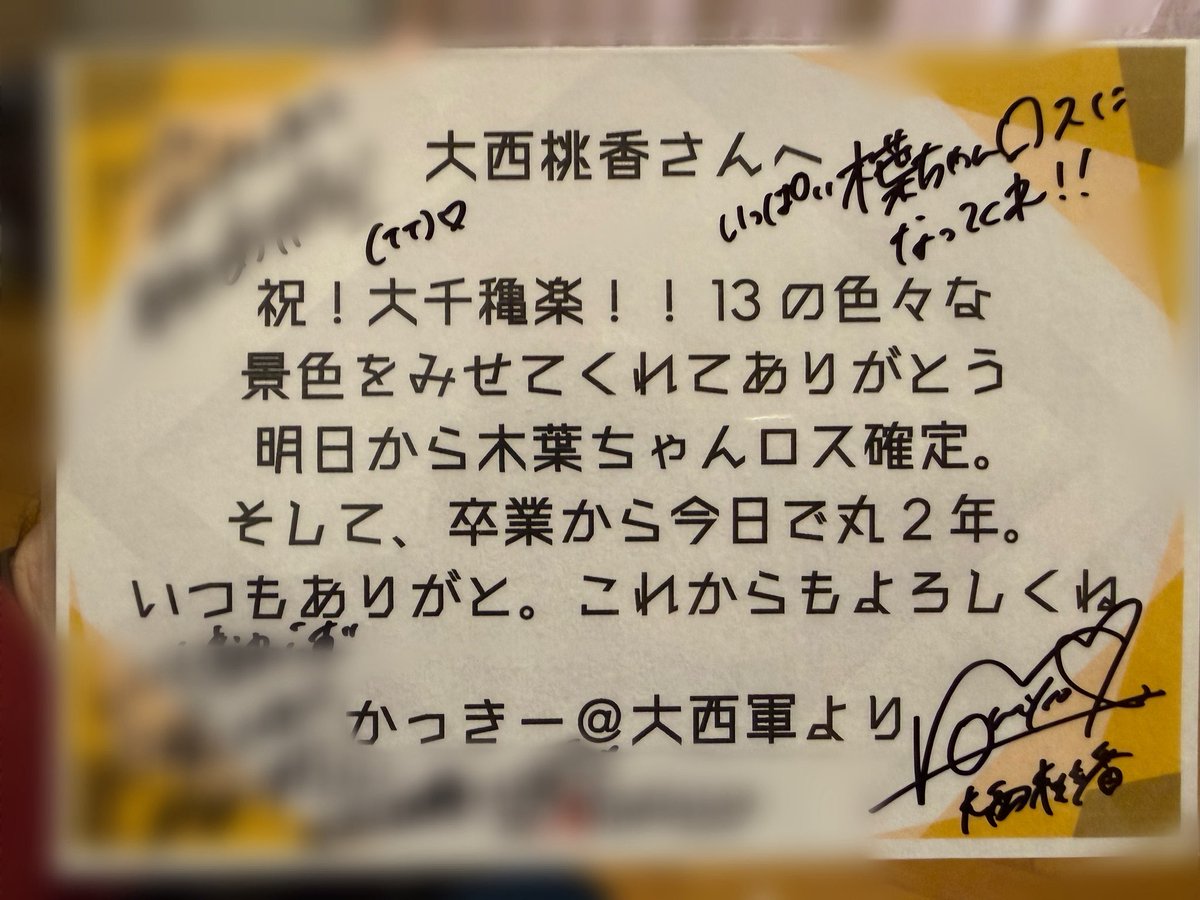 大西桃香さんへ
いっぱい木葉ちゃんロスに
なってくれ!!
(TT)♡
祝！大千穐楽！！13の色々な
景色をみせてくれてありがとう
明日から木葉ちゃんロス確定。
そして、卒業から今日で丸２年。
いつもありがと。これからもよろしくね
かっきー＠大西軍より
大西桃香